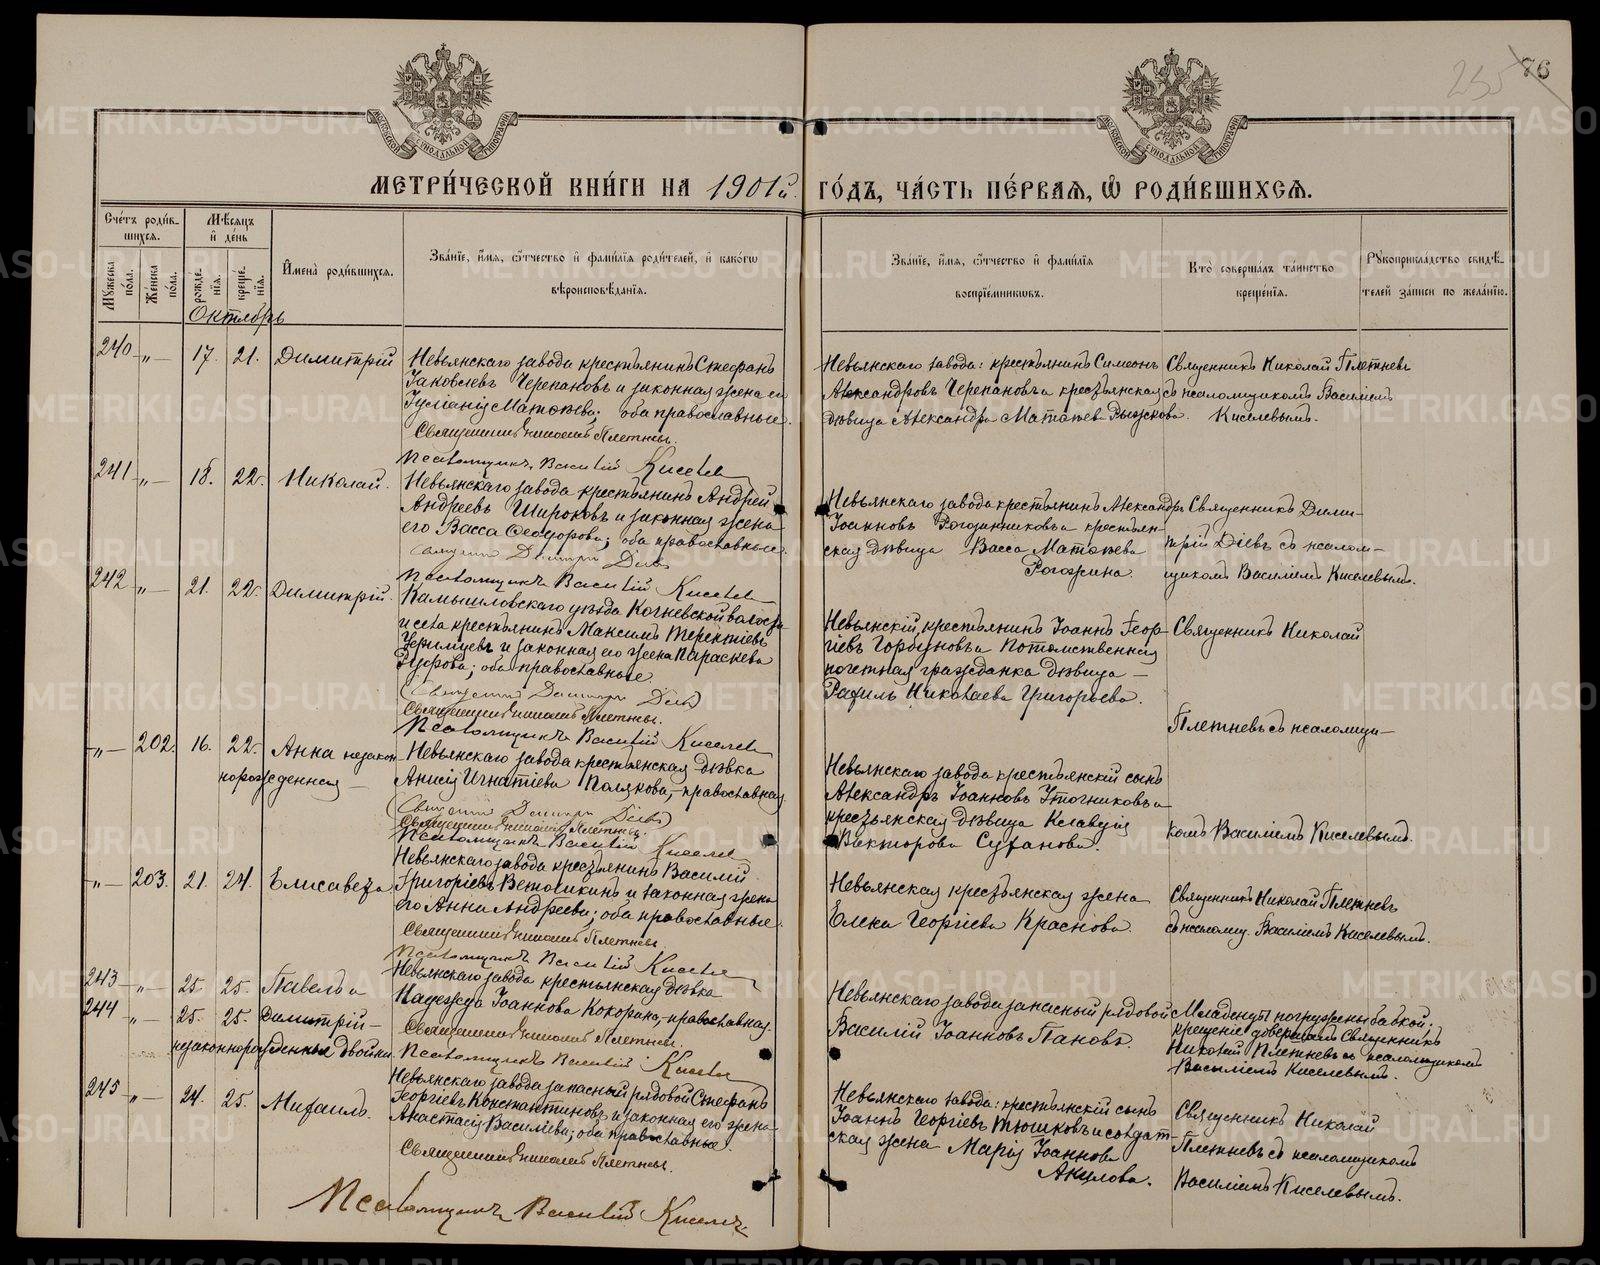 255 76
МОСКОВСКОЙ СѴНОДАЛЬНОЙ ТИПОГРАФІИ
МОСКОВСКОЙ СѴНОДАЛЬНОЙ ТИПОГРАФІИ
МЕТРИ́ЧЕСКОЙ КНИ́ГИ НА 1901й ГО́ДЪ, ЧА́СТЬ ПЕ́РВАЯ, Ѿ РОДИ́ВШИХСЯ.
Сче́тъ роди́в-
шихся.
Мѣсяцъ
и҆ де́нь
Мꙋжеска по́ла.
Же́нска по́ла.
рожде́нїя.
креще́нїя.
И҆мена̀ роди́вшихся.
Зва́нїе, и҆́мя, ѻ҆́тчество и҆ фами́лїя роди́телей, и҆ како́гѡ
вѣроисповѣ́данїя.
Зва́нїе, и҆́мя, ѻ҆́тчество и҆ фами́лїя
воспрїе́мникѡвъ.
Кто̀ соверша́лъ та́инство
креще́нїя.
Рꙋкоприкла́дство свидѣ́-
телей за́писи по жела́нїю.
Октябрь
240 „ 17. 21. Димитрій
Невьянскаго завода крестьянинъ Стефанъ
Іаковлевъ Черепановъ и законная жена его
Іуліанія Матѳеева; оба православные.
Священникъ Николай Плетневъ.
Псаломщикъ Василій Киселев
Невьянскаго завода: крестьянинъ Симеонъ
Александровъ Черепановъ и крестьянская
дѣвица Александра Матѳеева Рыжкова.
Священникъ Николай Плетневъ
съ псаломщикомъ Василіемъ
Киселевымъ.
241 „ 18. 22. Николай.
Невьянскаго завода крестьянинъ Андрей
Андреевъ Широковъ и законная жена
его Васса Ѳеодорова; оба православные.
Священникъ Димитрій Діевъ
Псаломщикъ Василій Киселев
Невьянскаго завода крестьянинъ Александръ
Іоанновъ Рогожниковъ и крестьян-
ская дѣвица Васса Матѳеева
Рогожина.
Священникъ Дими-
трій Діевъ съ псалом-
щикомъ Василіемъ Киселевымъ.
242 „ 21. 22. Димитрій.
Камышловскаго уѣзда Кочневской волости
и села крестьянинъ Максимъ Терентіевъ
и законная его жена Параскева
оба православные.
Священникъ Димитрій Діевъ
Священникъ Николай Плетневъ.
Псаломщикъ Василій Киселев
Невьянскій крестьянинъ Іоаннъ Геор-
гіевъ Горбуновъ и Потомственная
почетная гражданка дѣвица
Рафиль Николаева Григорьева.
Священникъ Николай
Плетневъ съ псаломщи-
комъ Василіемъ Киселевымъ.
„ 202. 16. 22. Анна незакон-
норожденная
Невьянскаго завода крестьянская дѣвка
Анисія Игнатіева Полякова, православная.
Священникъ Димитрій Діевъ
Священникъ Николай Плетневъ.
Псаломщикъ Василій Киселев
Невьянскаго завода крестьянскій сынъ
Александръ Іоанновъ и
крестьянская дѣвица Клавдія
Викторова Суханова.
„ 203. 21. 24. Елисавета
Невьянскаго завода крестьянинъ Василій
Григоріевъ Ветошкинъ и законная жена
его Анна Андреева; оба православные.
Священникъ Николай Плетневъ.
Псаломщикъ Василій Киселев
Невьянская крестьянская жена
Елена Георгіева Краснова.
Священникъ Николай Плетневъ
съ псаломщ. Василіемъ Киселевымъ.
243 „ 25. 25. Павелъ и
244 „ 25. 25. Димитрій
незаконнорожденные двойни
Невьянскаго завода крестьянская дѣвка
Надежда Іоаннова Кокорина, православная.
Священникъ Николай Плетневъ.
Псаломщикъ Василій Киселев
Невьянскаго завода запасный рядовой
Василій Іоанновъ Пановъ.
Младенцы погружены бабкой;
крещеніе довершалъ Священникъ
Николай Плетневъ съ псаломщикомъ
Василіемъ Киселевымъ.
245 „ 24. 25. Михаилъ.
Невьянскаго завода запасный рядовой Стефанъ
Георгіевъ Константиновъ и законная его жена
Анастасія Василіева; оба православные.
Священникъ Николай Плетневъ.
Псаломщикъ Василій Киселевъ
Невьянскаго завода: крестьянскій сынъ
Іоаннъ Георгіевъ Тюшковъ и солдат-
ская жена Марія Іоаннова
Акулова.
Священникъ Николай
Плетневъ съ псаломщикомъ
Василіемъ Киселевымъ.
METRIKI.GASO-URAL.RU